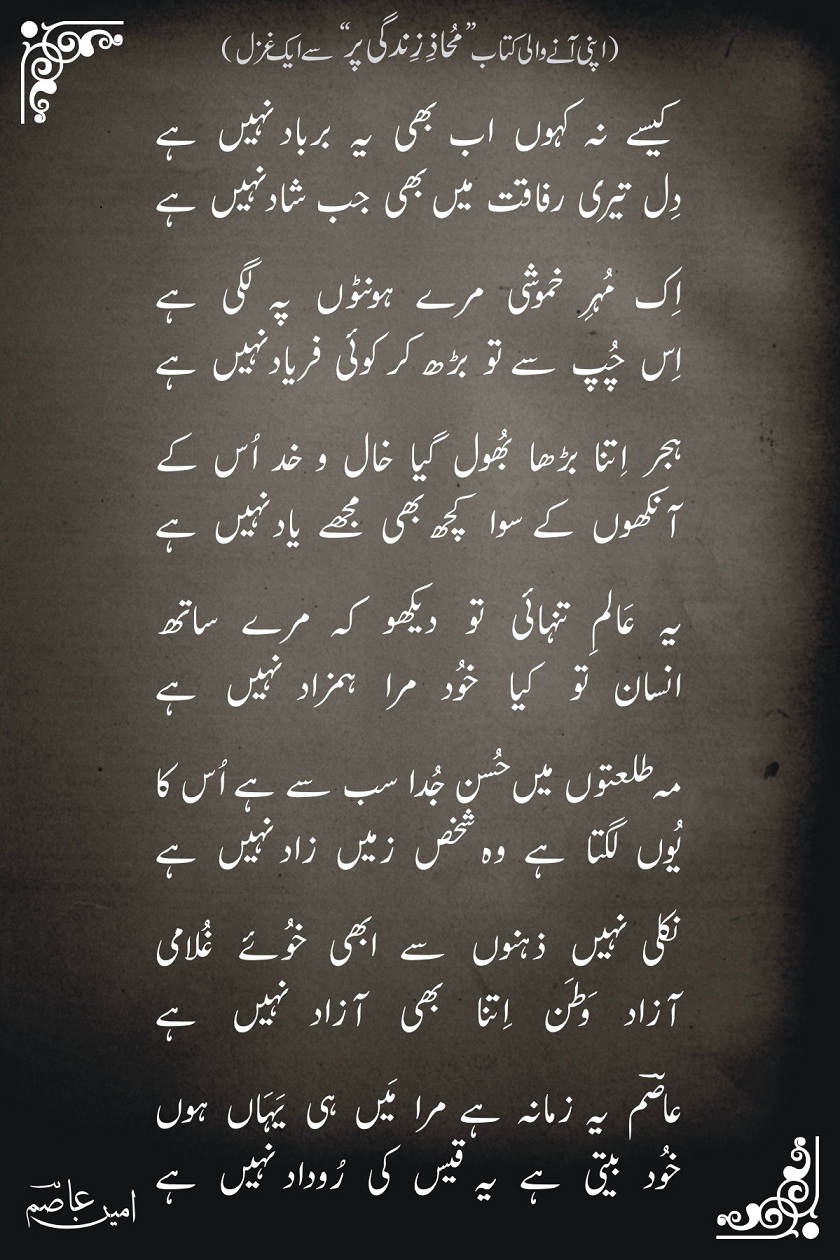 (اپنی آنے والی کتاب ”مُحاذِ زِندگی پر“ سے ایک غزل)
کیسے نہ کہوں اب بھی یہ برباد نہیں ہے
دِل تیری رفاقت میں بھی جب شاد نہیں ہے
اِک مُہرِ خموشی مرے ہونٹوں پہ لگی ہے
اِس چُپ سے تو بڑھ کر کوئی فریاد نہیں ہے
ہجر اِتنا بڑھا بُھول گیا خال و خد اُس کے
آنکھوں کے سوا کچھ بھی مجھے یاد نہیں ہے
یہ عَالمِ تنہائی تو دیکھو کہ مرے ساتھ
انسان تو کیا خُود مرا ہمزاد نہیں ہے
مہ طلعتوں میں حُسن جُدا سب سے ہے اُس کا
یُوں لگتا ہے وہ شخص زمیں زاد نہیں ہے
نکلی نہیں ذہنوں سے ابھی خُوئے غُلامی
آزاد وَطَن اِتنا بھی آزاد نہیں ہے
عاصمؔ یہ زمانہ ہے مرا مَیں ہی یَہَاں ہوں
خُود بیتی ہے یہ قیس کی رُوداد نہیں ہے
امین عاصمؔ